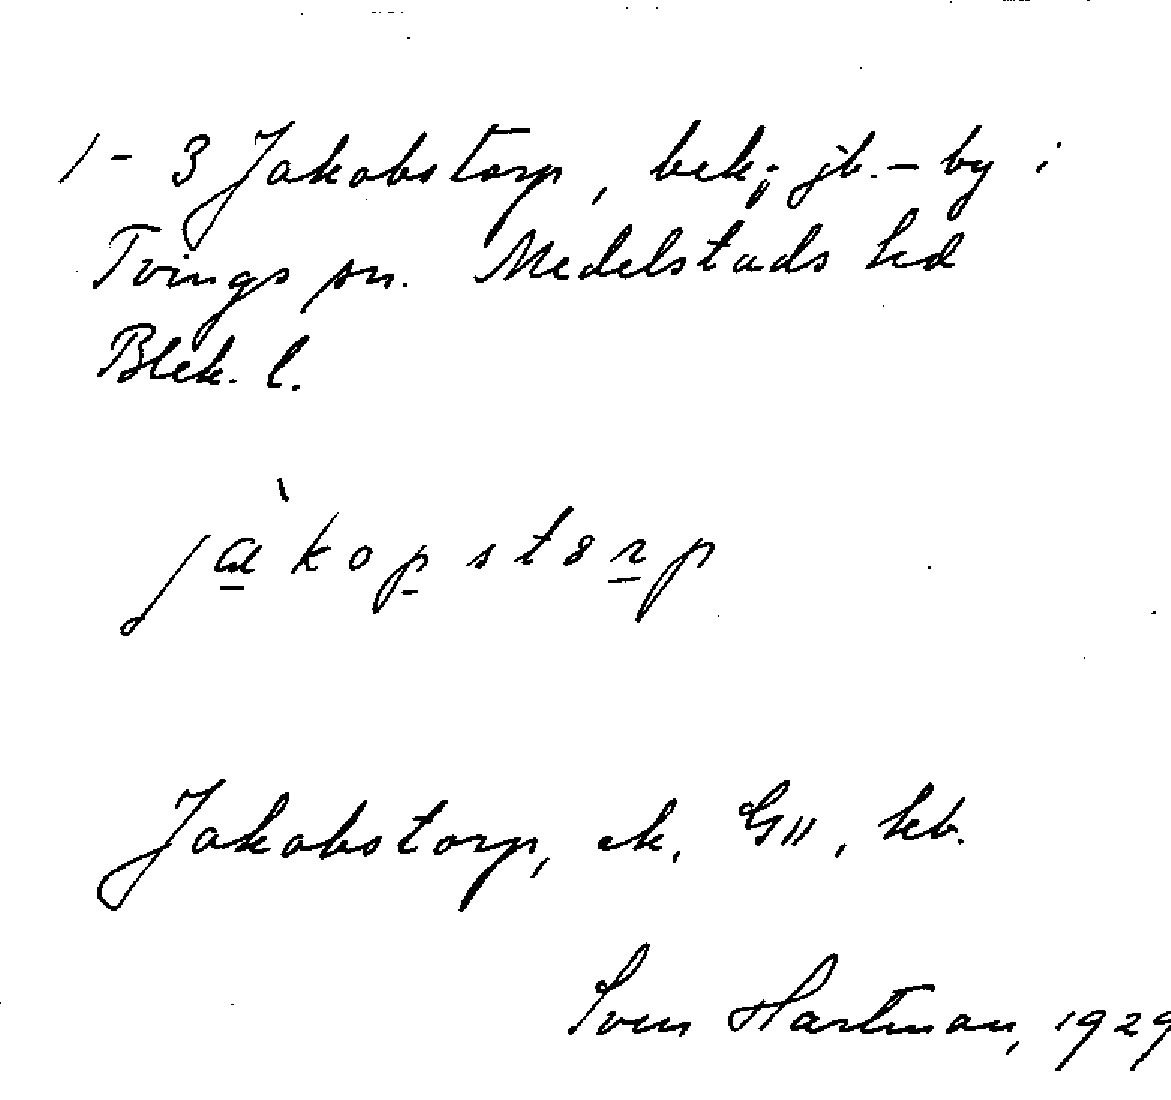 1-3 Jakobstorp, bek., jb.-by i
Tvings sn. Medelstads hd
Blek. l.
jàkopstorp
Jakobstorp, ek. G11, kb.
Sven Hartman, 1929